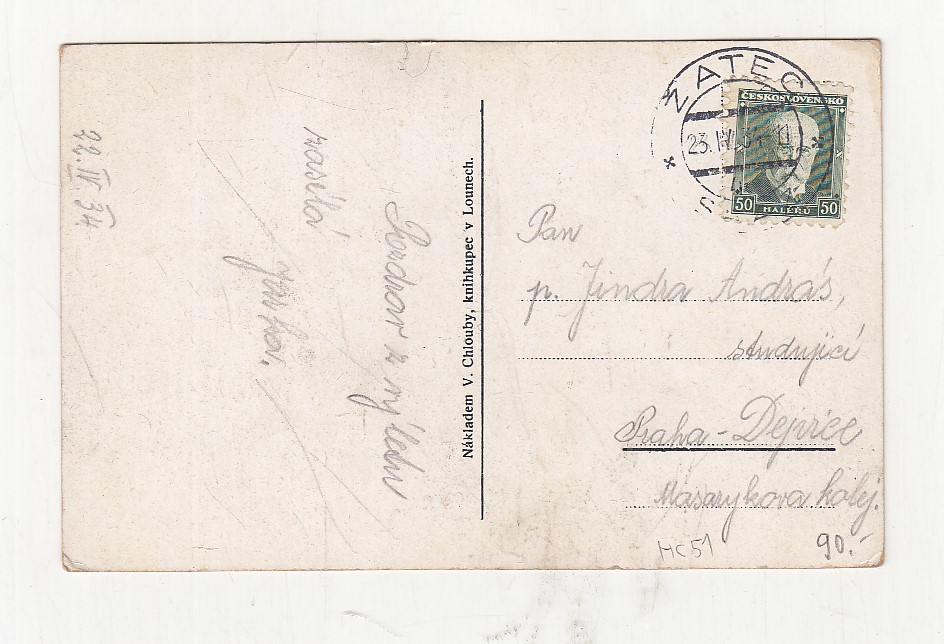 22. IV. 34
Pozdrav z výletu
zasílá
Nákladem V. Chlouby, knihkupec v Lounech.
ŽATEC
23. IV. 34
ČESKOSLOVENSKO
50 HALÉŘŮ 50
Pan
p. Jindra András,
studující
Praha - Dejvice
Masarykova kolej.
HC51
90.-